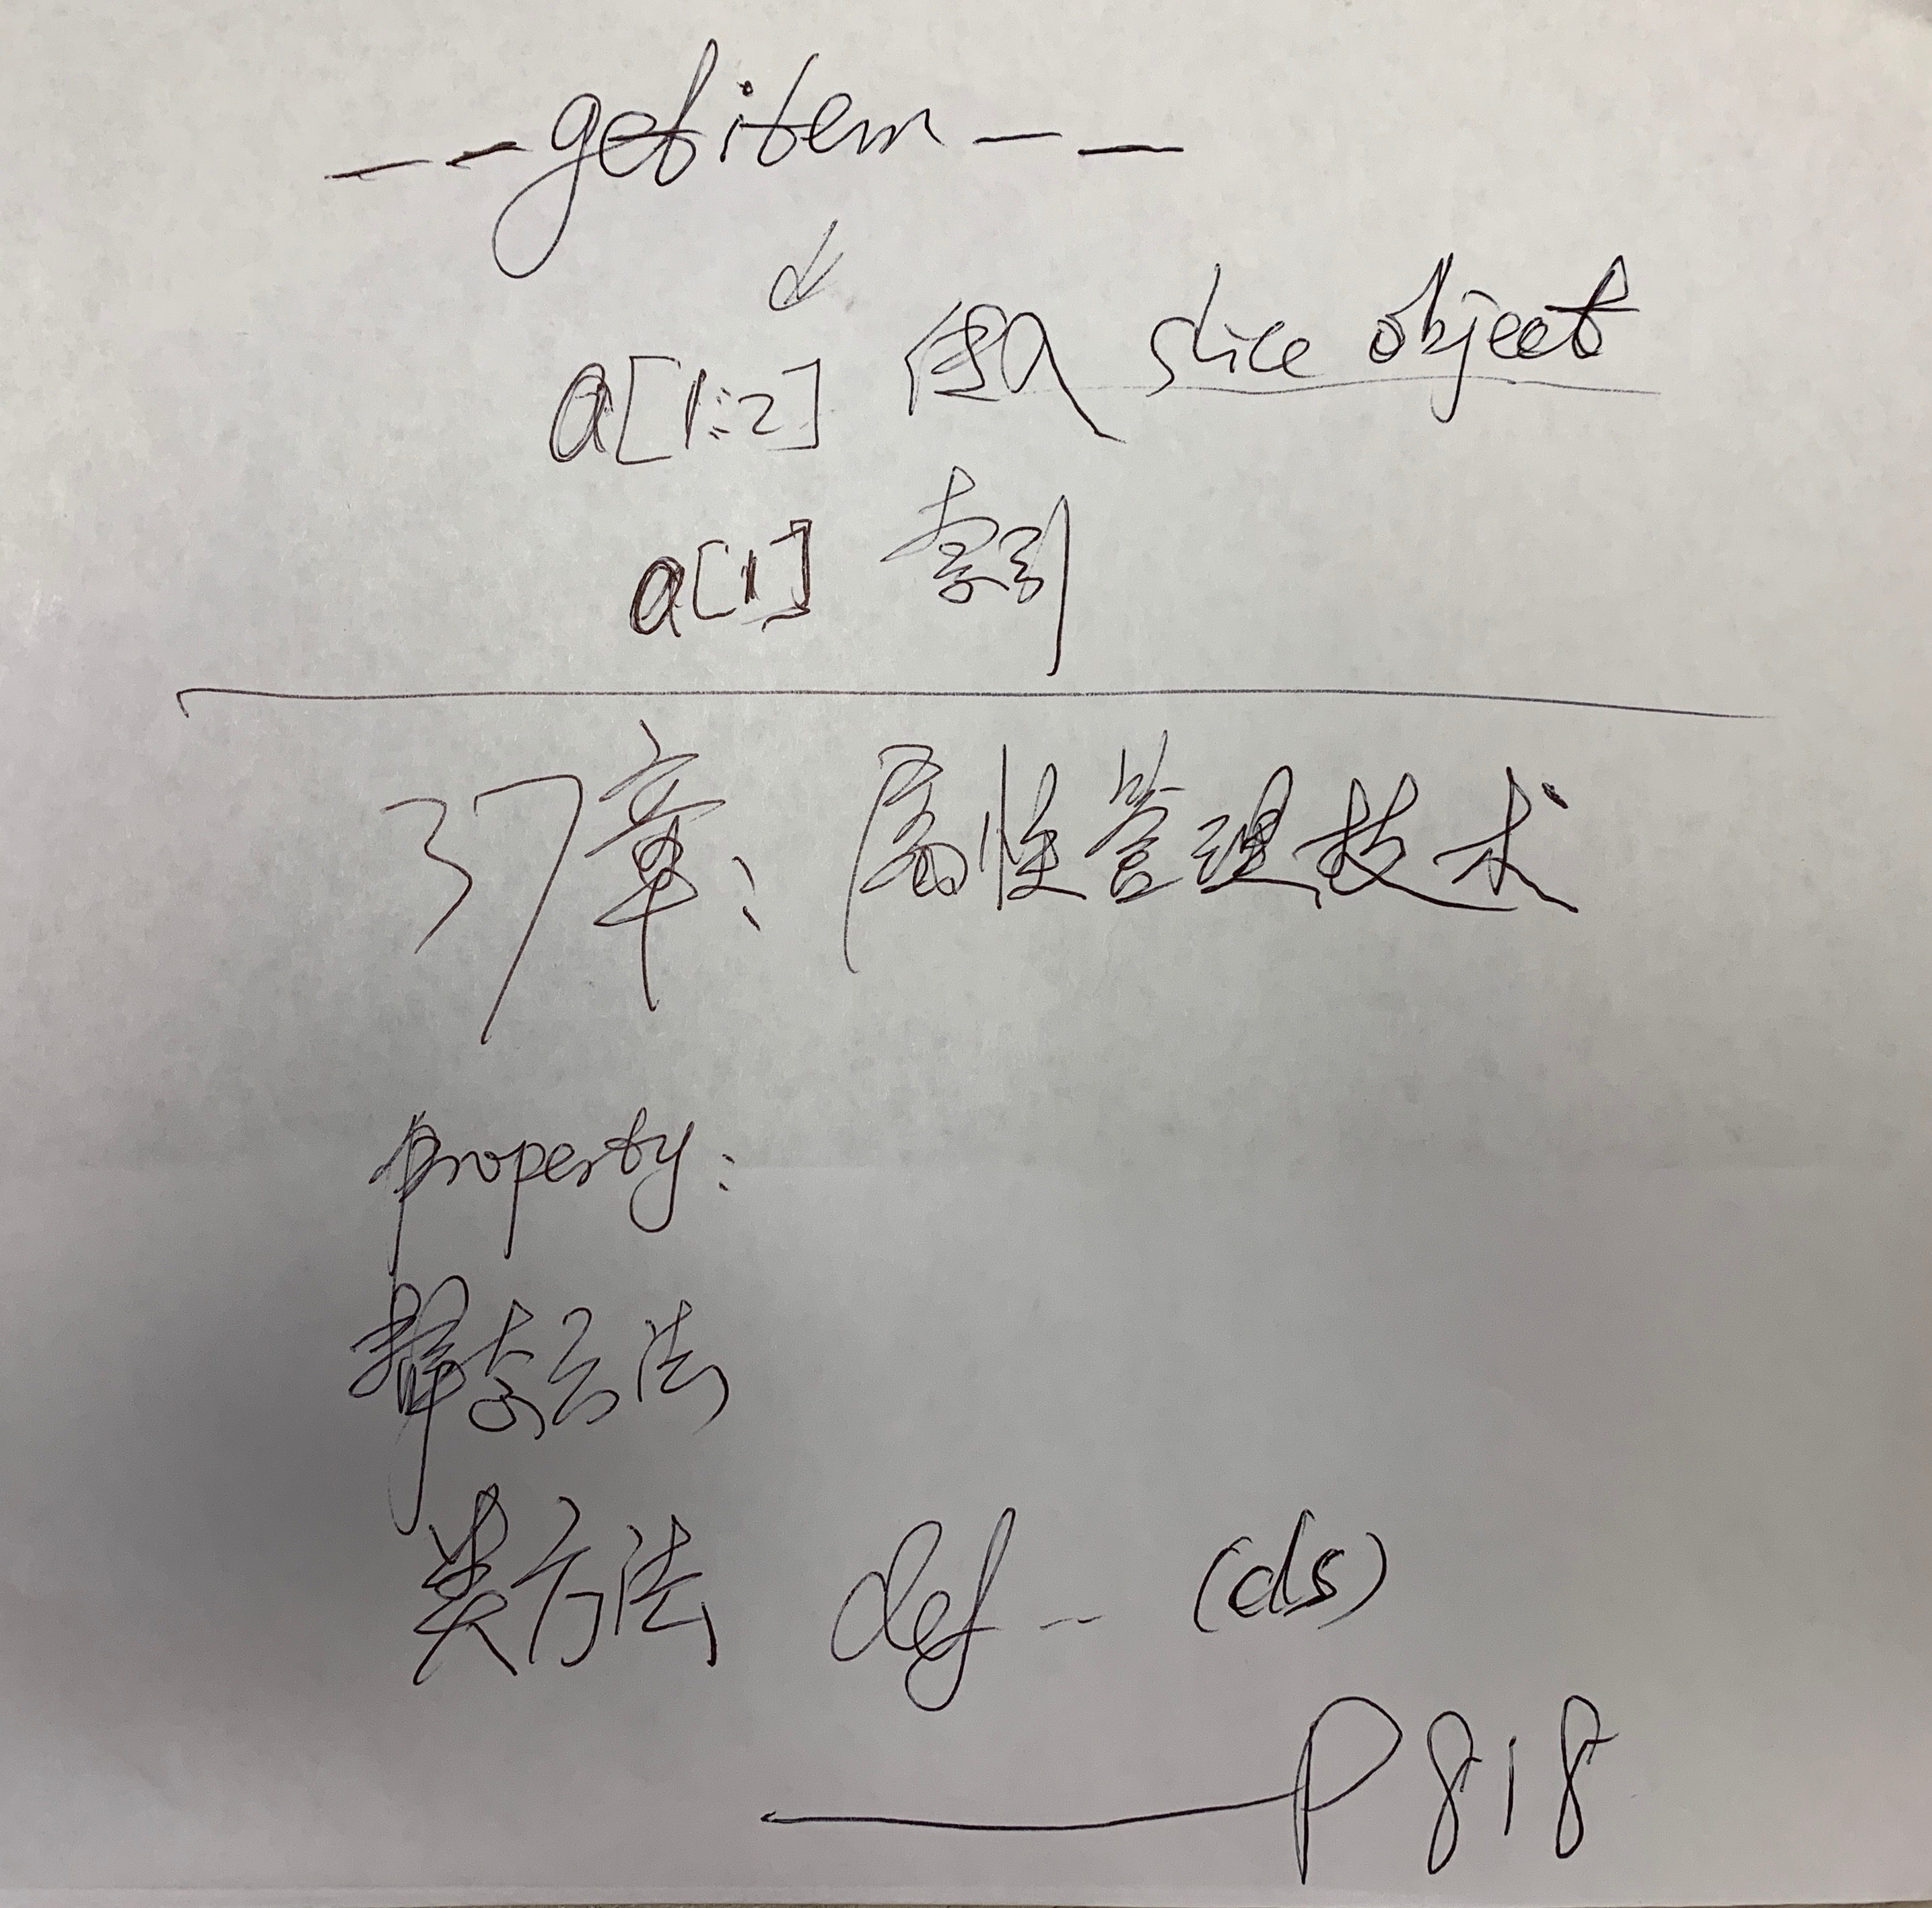 __getitem__
a[1:2] 传入 slice object
a[1] 索引
37章: 属性管理技术
property:
方法
类方法 def -- (cls)
P818